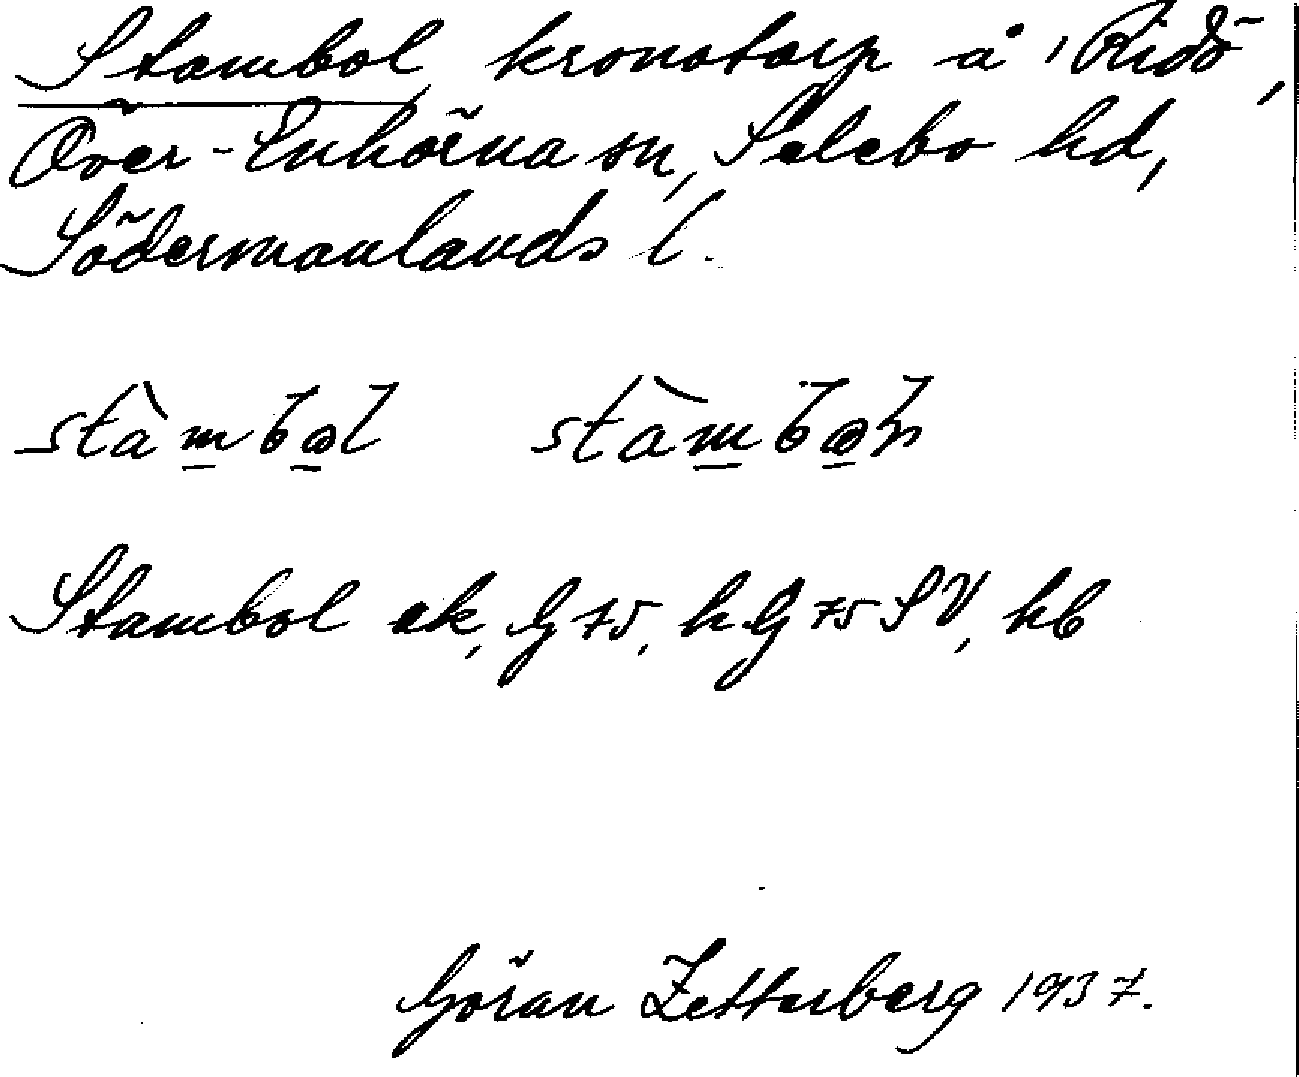 Stambol kronotorp å Ridö,
Över-Enhörna sn, Selebo hd,
Södermanlands l.
stàmbol stàmbon
Stambol ek, G 75, h G 75 SV, hb
Göran Zetterberg 1937.